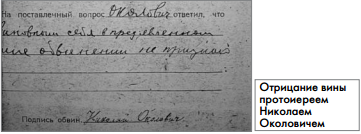 На поставленный вопрос Околович ответил, что
виновным себя в предъявленном
мне обвинении не признаю
Подпись обвин. Николай Околович.
Отрицание вины
протоиереем
Николаем
Околовичем